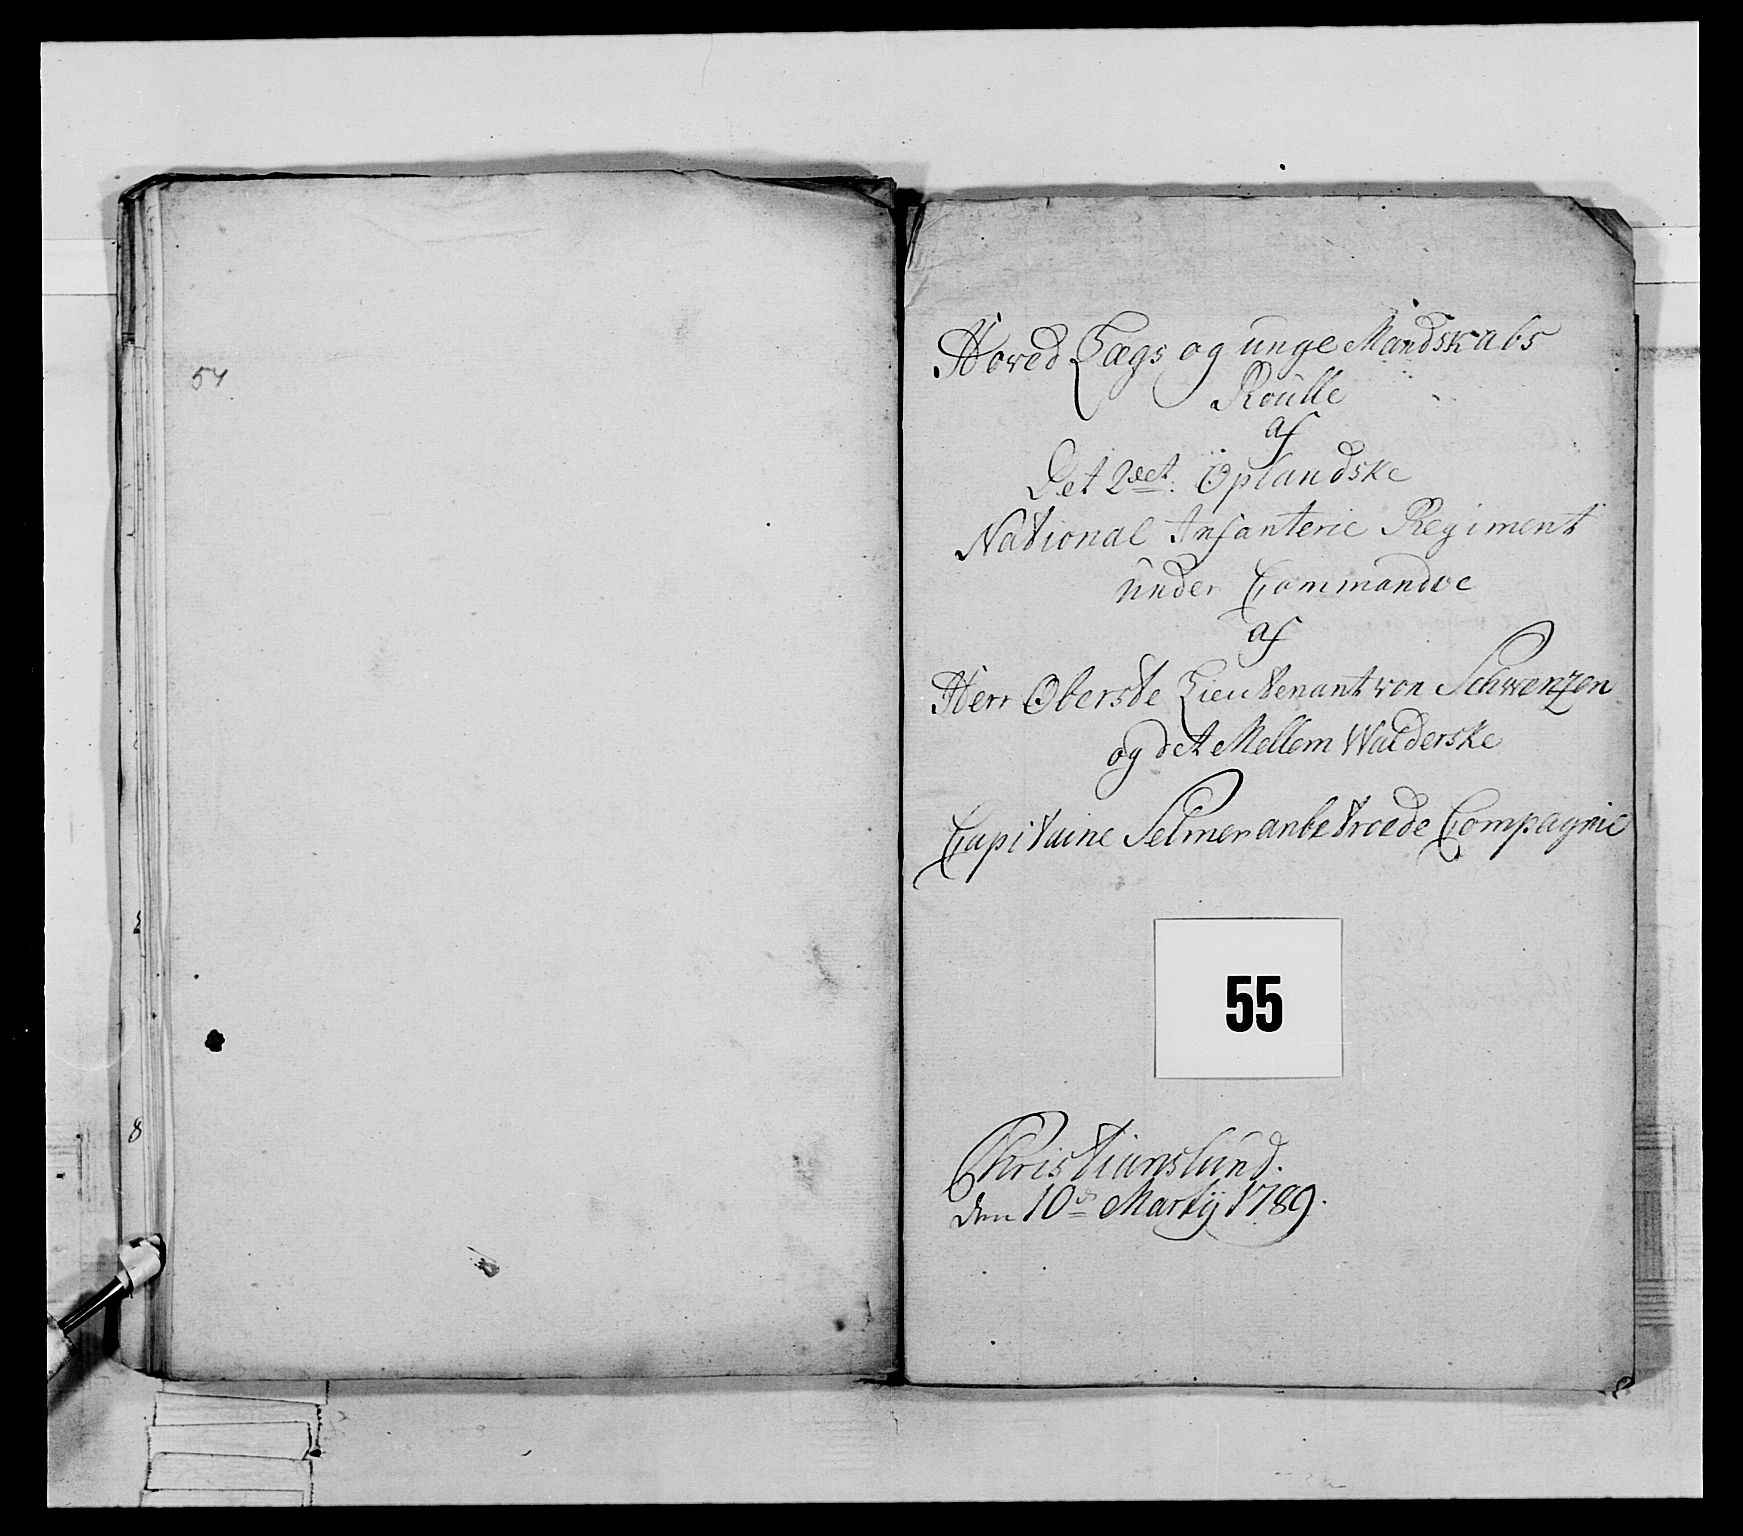 54
Hoved Lægs og unge Mandskabs
Roulle
af
Det 2det Oplandske
National Infanterie Regiment
under Commandoe
af
Herr Oberste Lieutenant von Schwenzen
og det Mellem Walderske
Capitaine Selmer anbetroede Compagnie
55
Christianslund.
den 10de Martÿ 1789.
8